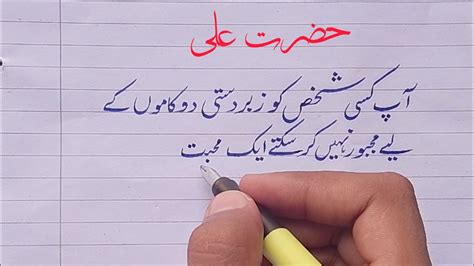 حضرت علی
آپ کسی شخص کو زبردستی دو کاموں کے
لیے مجبور نہیں کر سکتے ایک محبت